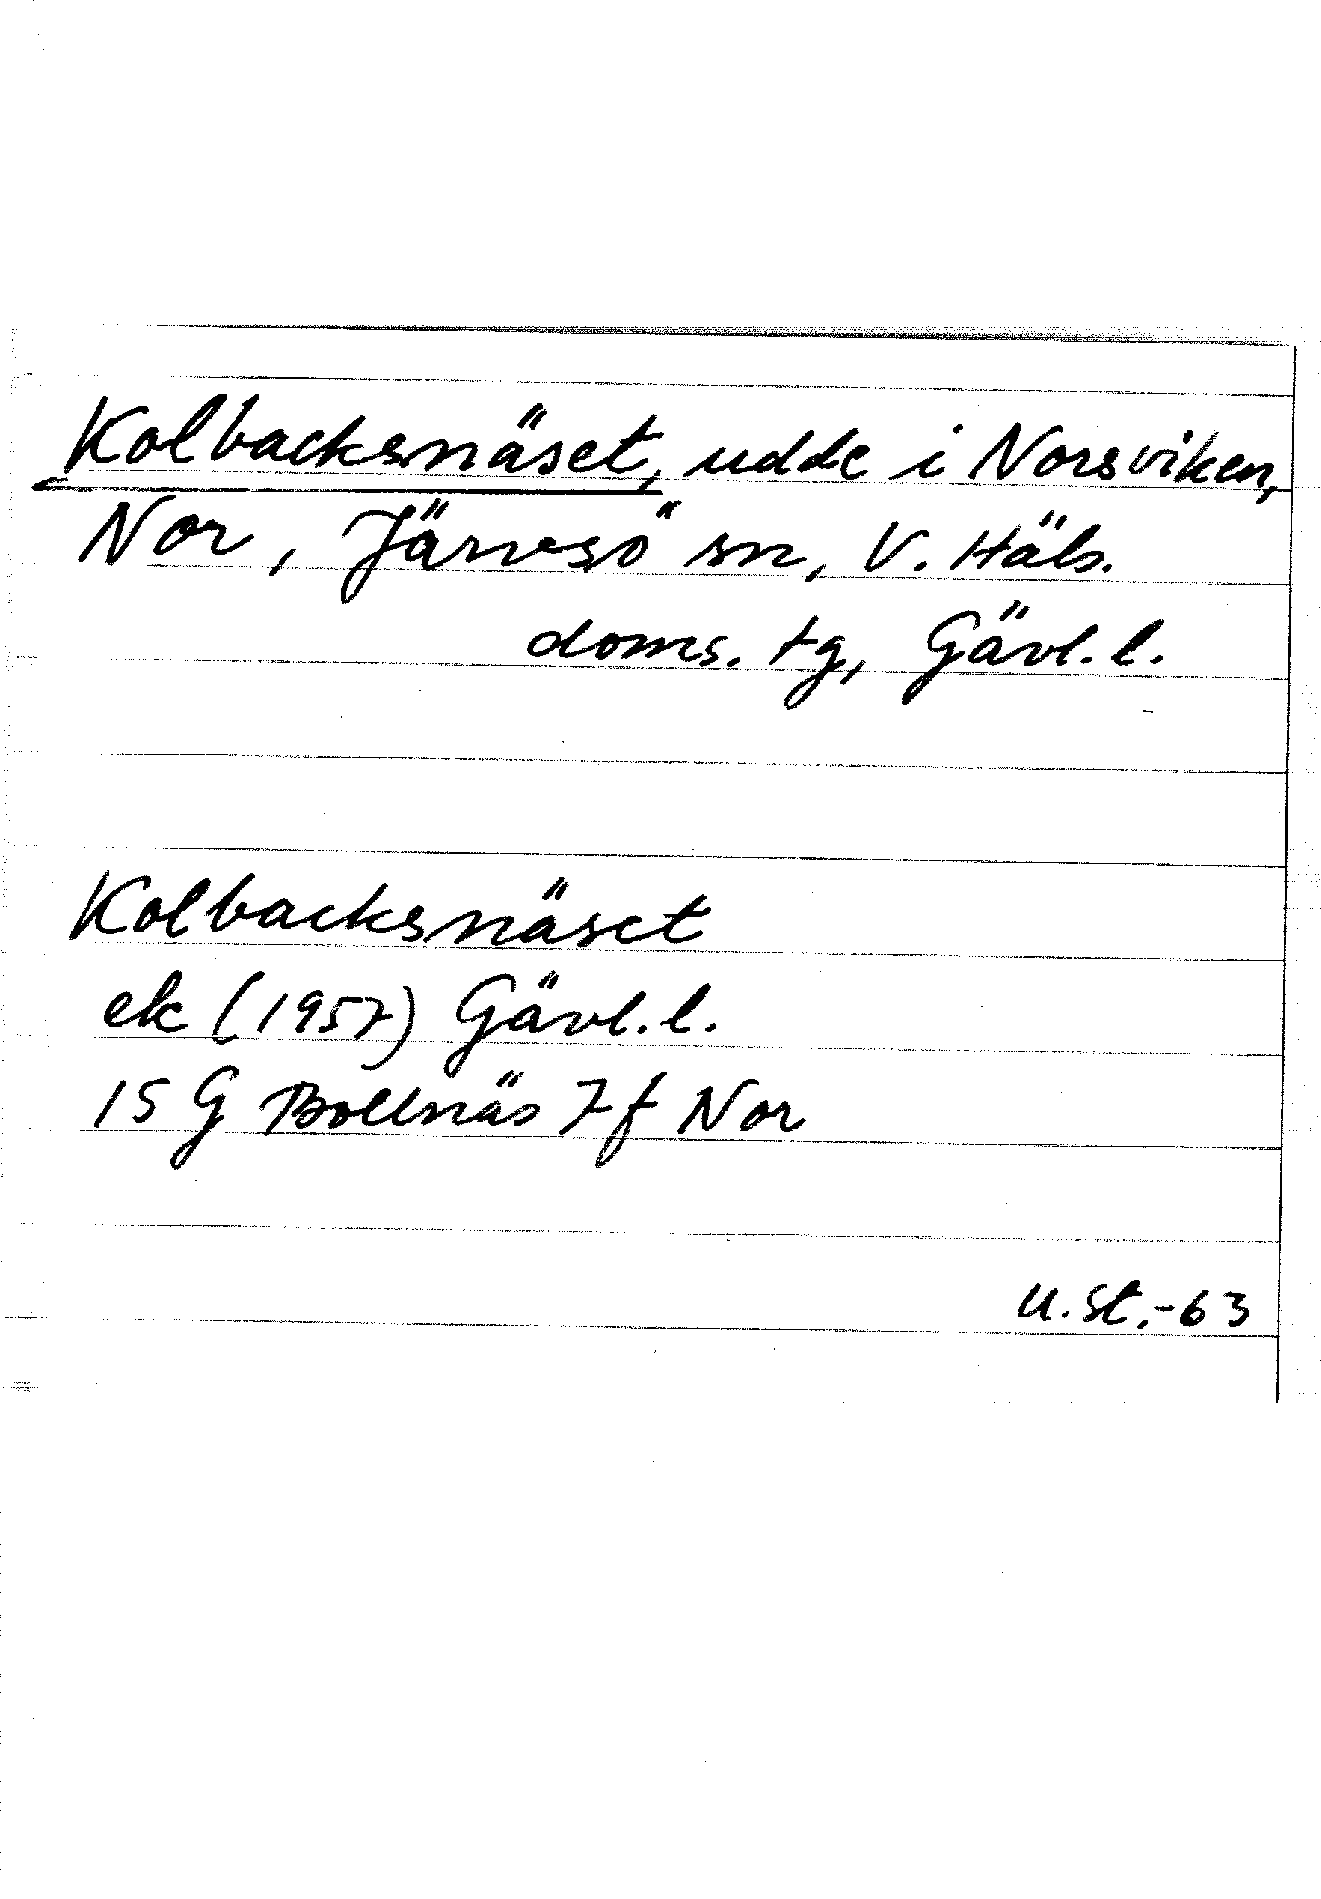 Kolbacksnäset, udde i Norsviken,
Nor, Järvsö sn, V. Häls.
doms. tg, Gävl. l.
Kolbacksnäset
ek (1957) Gävl. l.
15 G Bollnäs 7f Nor
U. St. -63